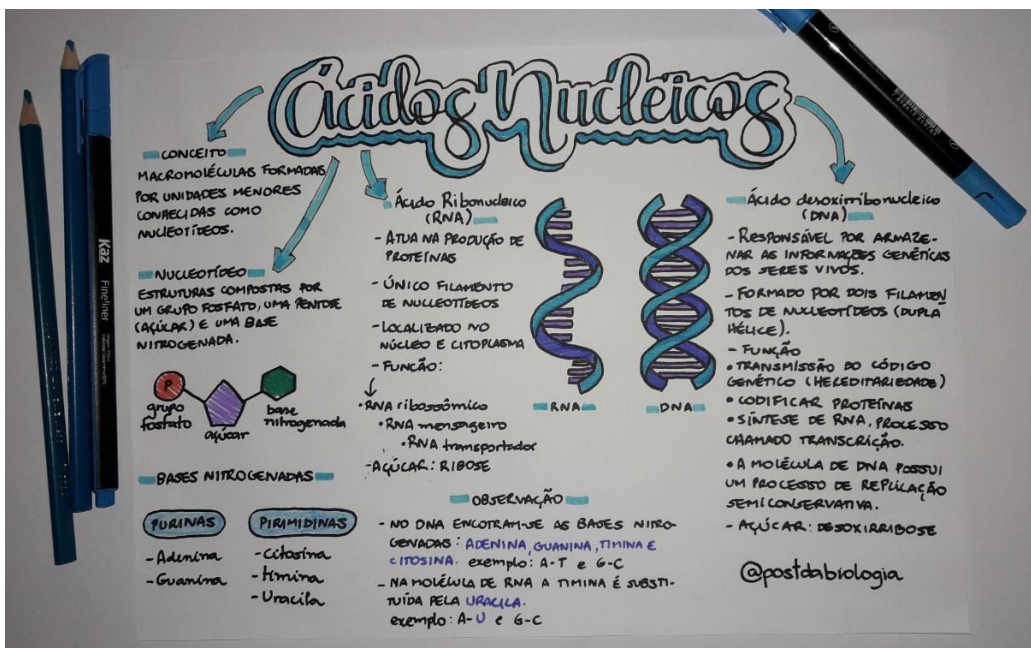 Ácidos Nucleicos
CONCEITO
MACROMOLÉCULAS FORMADAS
POR UNIDADES MENORES
CONHECIDAS COMO
NUCLEOTÍDEOS.
NUCLEOTÍDEO
ESTRUTURAS COMPOSTAS POR
UM GRUPO FOSFATO, UMA PENTOSE
(AÇÚCAR) E UMA BASE
NITROGENADA.
P
grupo
fosfato
açúcar
base
nitrogenada
BASES NITROGENADAS
PURINAS
-Adenina
-Guanina
PIRIMIDINAS
-Citosina
-timina
-Uracila
Ácido Ribonucleico
(RNA)
- ATUA NA PRODUÇÃO DE
PROTEÍNAS
- ÚNICO FILAMENTO
DE NUCLEOTÍDEOS
- LOCALIZADO NO
NÚCLEO E CITOPLASMA
- FUNCÃO:
•RNA ribossômico
•RNA mensageiro
•RNA transportador
-AÇÚCAR: RIBOSE
RNA
DNA
OBSERVAÇÃO
- NO DNA ENCOTRAM-SE AS BASES NITRO-
GENADAS: ADENINA, GUANINA, TIMINA E
CITOSINA. exemplo: A-T e G-C
- NA MOLÉCULA DE RNA A TIMINA É SUBSTI-
TUÍDA PELA URACILA.
exemplo: A-U e G-C
Ácido desoxirribonucleico
(DNA)
- RESPONSÁVEL POR ARMAZE-
NAR AS INFORMAÇÕES GENÉTICAS
DOS SERES VIVOS.
- FORMADO POR DOIS FILAMEN
TOS DE NUCLEOTÍDEOS (DUPLA
HÉLICE).
- FUNÇÃO
• TRANSMISSÃO DO CÓDIGO
GENÉTICO (HEREDITARIEDADE)
• CODIFICAR PROTEÍNAS
• SÍNTESE DE RNA, PROCESSO
CHAMADO TRANSCRIÇÃO.
• A MOLÉCULA DE DNA POSSUI
UM PROCESSO DE REPLICAÇÃO
SEMICONSERVATIVA.
- AÇÚCAR: DESOXIRRIBOSE
@postdabiologia
Kaz
Fine liner